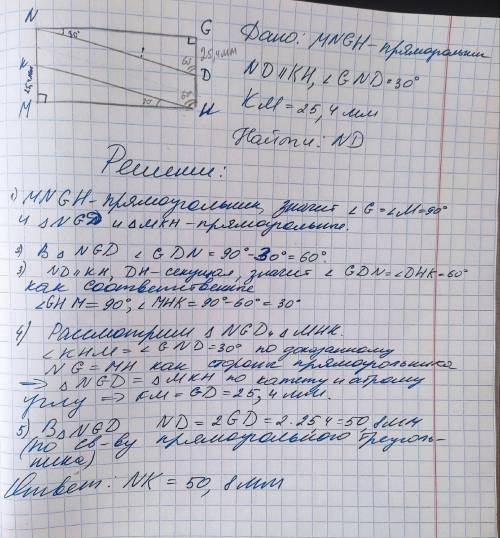 N
G
30°
25,4мм
Дано: MNGH-прямоугольник
K
60
D
ND∥KH, ∠GND=30°
25,4мм
60
M
30
H
KM = 25,4 мм
Найти: ND
Решение:
1) MNGH-прямоугольник, значит ∠G=∠M=90°
и △NGD и △MKH-прямоугольные.
2) В △NGD ∠GDN = 90°-30°=60°
3) ND∥KH, DH-секущая, значит ∠GDN=∠DHK=60°
как соответственные
∠GHM=90°, ∠MHK=90°-60°=30°
4) Рассмотрим △NGD и △MHK.
∠KHM=∠GND=30° по доказанному
NG=MH как стороны прямоугольника
⇒ △NGD = △MKH по катету и острому
углу ⇒ KM=GD=25,4мм.
5) В △NGD ND=2GD=2·25,4=50,8мм
(по св-ву прямоугольного треуголь-
ника)
Ответ: NK = 50,8мм